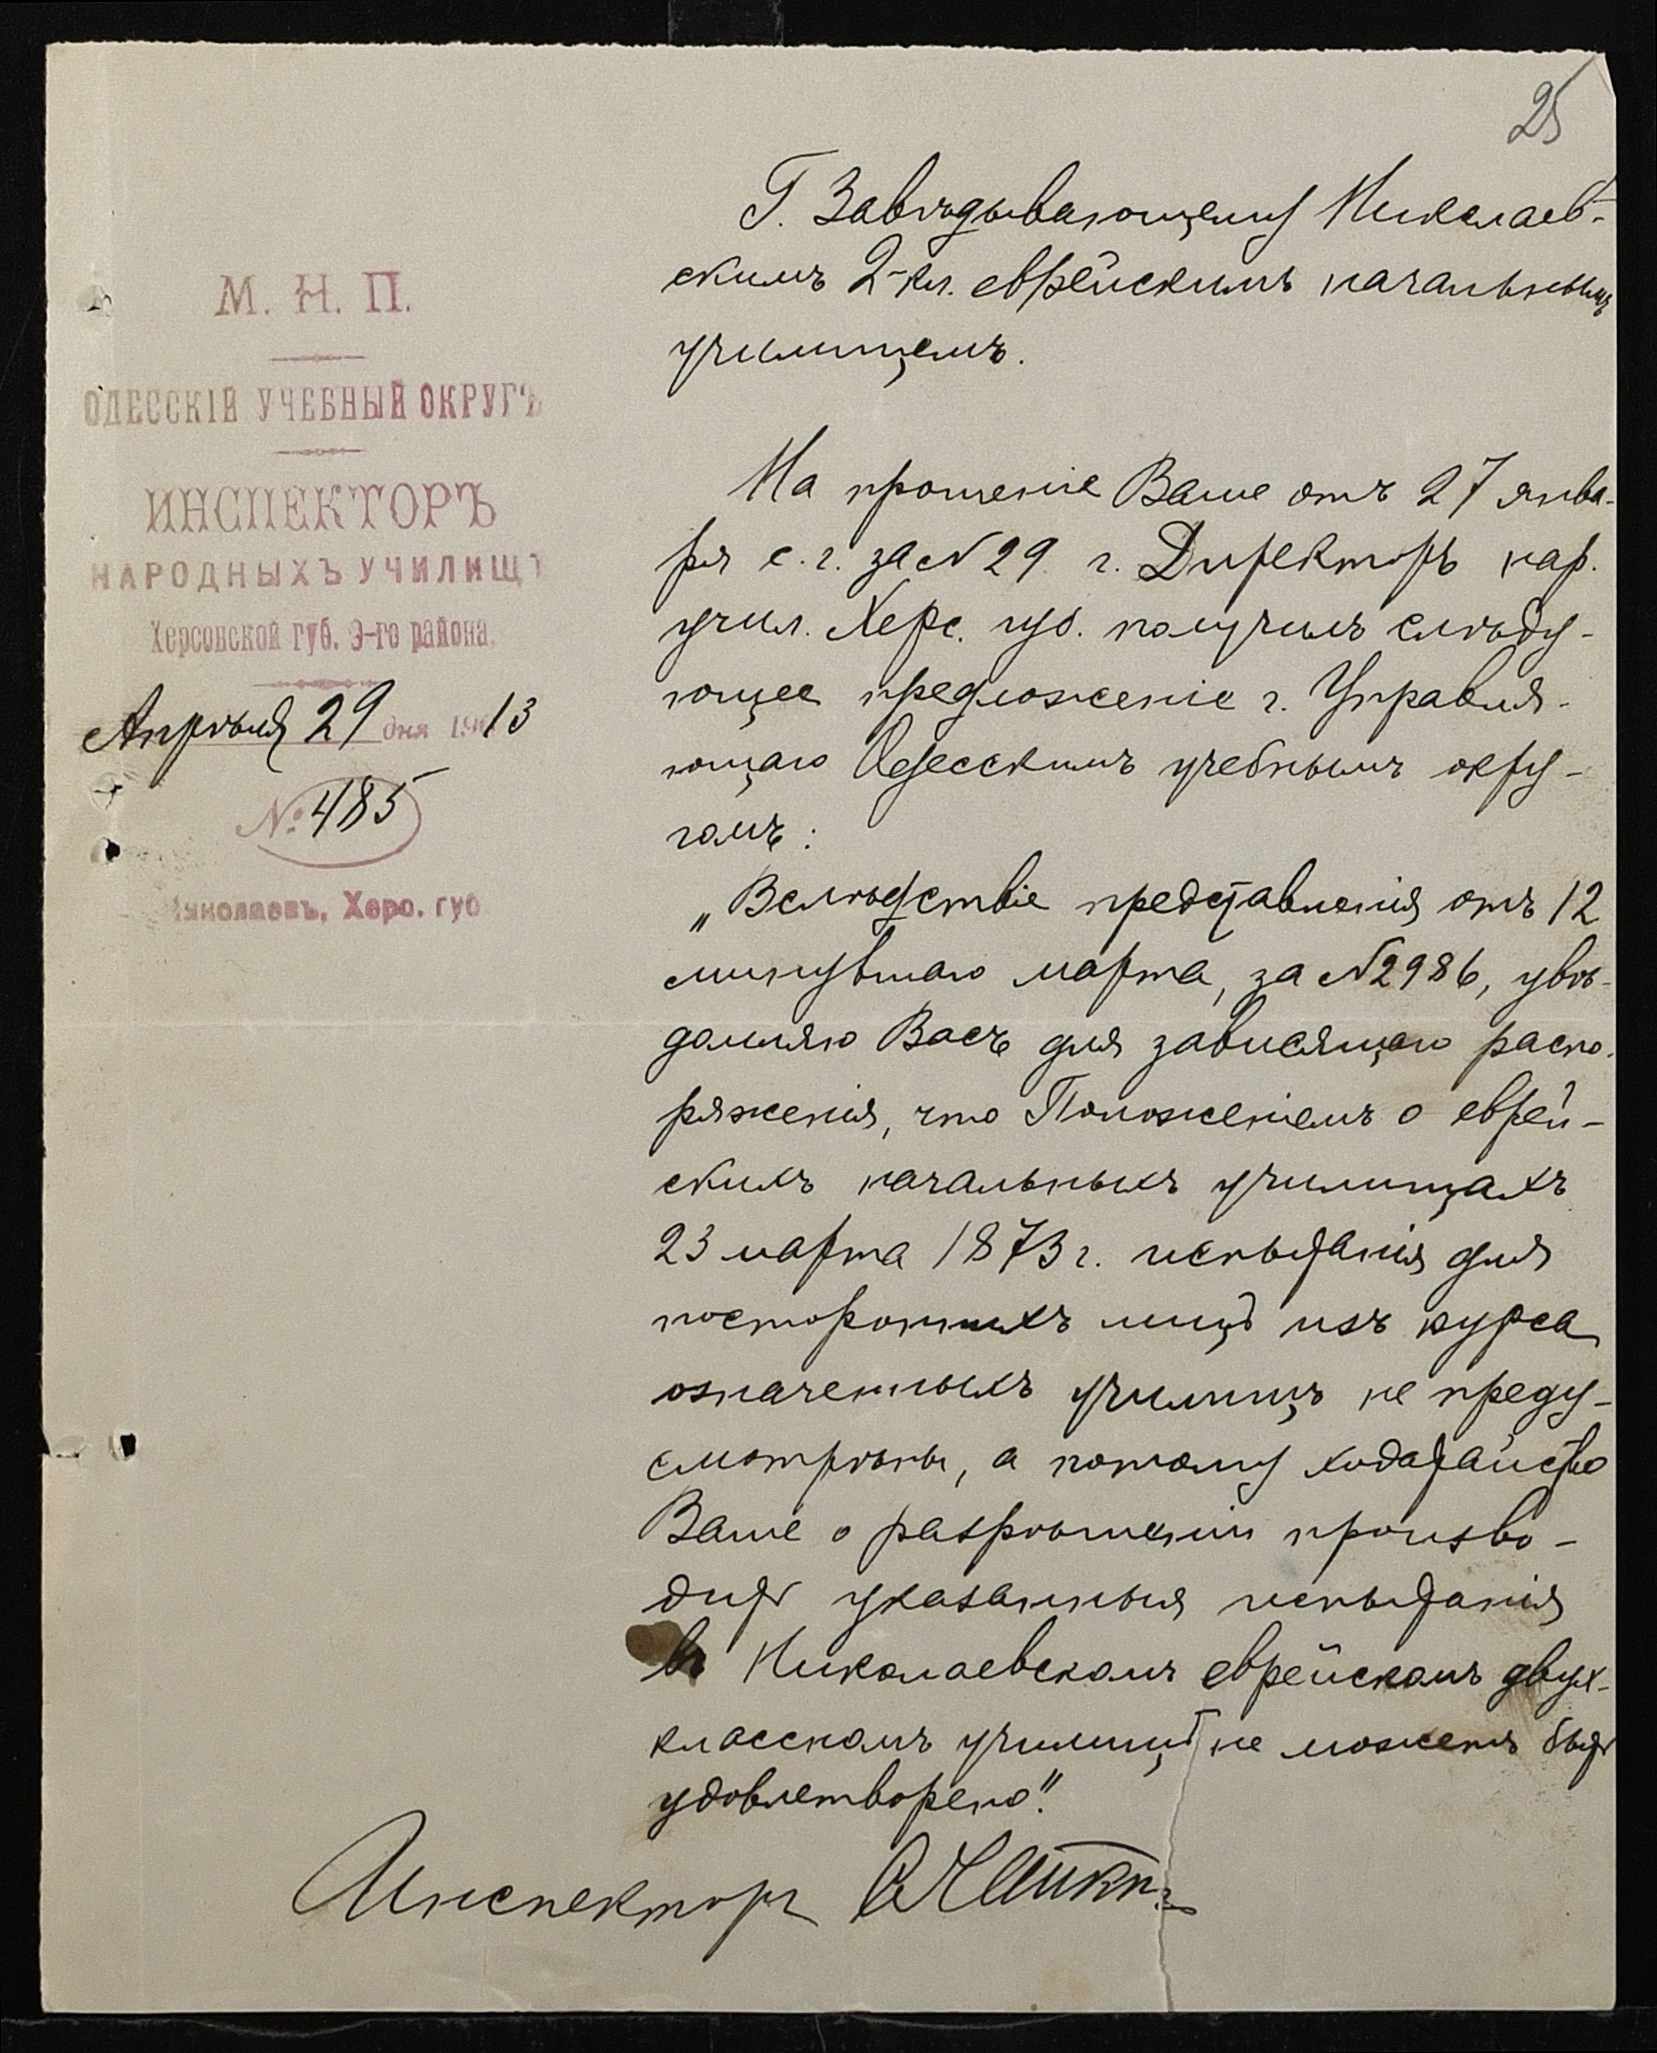 25
М. Н. П.
ОДЕССКІЙ УЧЕБНЫЙ ОКРУГЪ
ИНСПЕКТОРЪ
НАРОДНЫХЪ УЧИЛИЩЪ
Херсонской губ. 3-го района.
Апрѣля 29 дня 1913
№ 485
Николаевъ, Херс. губ.
Г. Завѣдывающему Николаев-
скимъ 2-кл. еврейскимъ начальнымъ
училищемъ.
На прошеніе Ваше отъ 27 янва-
ря с. г. за № 29 г. Директоръ нар.
учил. Херс. губ. получилъ слѣду-
ющее предложеніе г. Управля-
ющаго Одесскимъ учебнымъ окру-
гомъ:
„Вслѣдствіе представленія отъ 12
минувшаго марта, за № 2986, увѣ-
домляю Васъ для зависящаго распо-
ряженія, что Положеніемъ о еврей-
скихъ начальныхъ училищахъ
23 марта 1873 г. испытанія для
постороннихъ лицъ изъ курса
означенныхъ училищъ не преду-
смотрѣны, а потому ходатайство
Ваше о разрѣшеніи произво-
дить указанныя испытанія
въ Николаевскомъ еврейскомъ двух-
классномъ училищѣ не можетъ быть
удовлетворено".
Инспекторъ